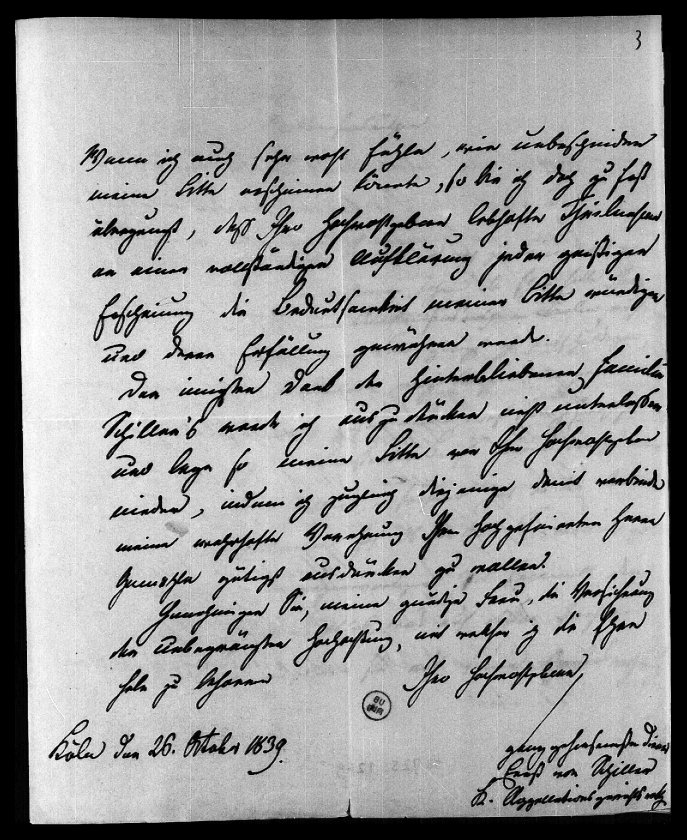 3
Wenn ich auch sehr wohl fühle, wie unbescheiden
meine Bitte erscheinen könnte, so bin ich doch zu fest
überzeugt, daß Ihro Hochwohlgeboren lebhafte Theilnahme
an einer vollständigen Aufklärung jeder geistigen
Erscheinung die Bedeutsamkeit meiner Bitte würdigen
und deren Erfüllung gewähren werde.
Den innigsten Dank der Hinterbliebenen Familie
Schiller's werde ich auszudrücken nicht unterlaßen
und lege so meine Bitte vor Ihro Hochwohlgebor
nieder, indem ich zugleich diejenige damit verbinde
meine wahrhafte Verehrung Ihrem hochgefeierten Herrn
Gemahle gütigst ausdrücken zu wollen.
Genehmigen Sie, meine gnädige Frau, die Versicherung
der unbegränzten Hochachtung, mit welcher ich die Ehre
habe zu beharren
Ihro Hochwohlgeboren
BU
Köln den 26. Oktober 1839.
ganz gehorsamster Diener
Ernst von Schiller
K. Appellationsgerichtsrath